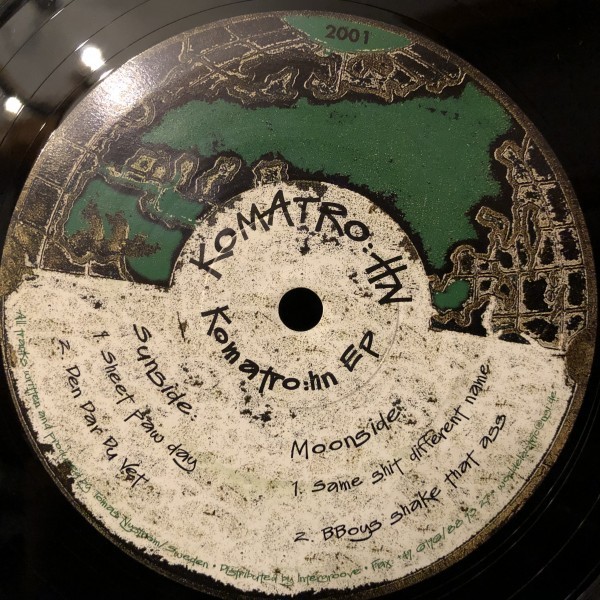 2001
KOMATRO:HN
Komatro:hn EP
Sunside:
1. Sheet paw day
2. Den Dar Du Vet
Moonside:
1. Same shit different name
2. BBoys shake that ass
All tracks written and by Tomas Nystrom/Sweden • Distributed by Intergroove • Fax: